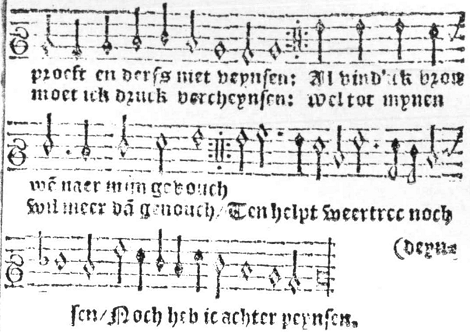 proeft en derfs niet veynsen: Al vind' ick vrou
moet ick druck vercheynsen: wel tot mynen
wē naer mijn gevouch
wil meer dā genouch/ Ten helpt weertree noch
(deyn⸗
sen/ Noch heb ic achter peynsen.